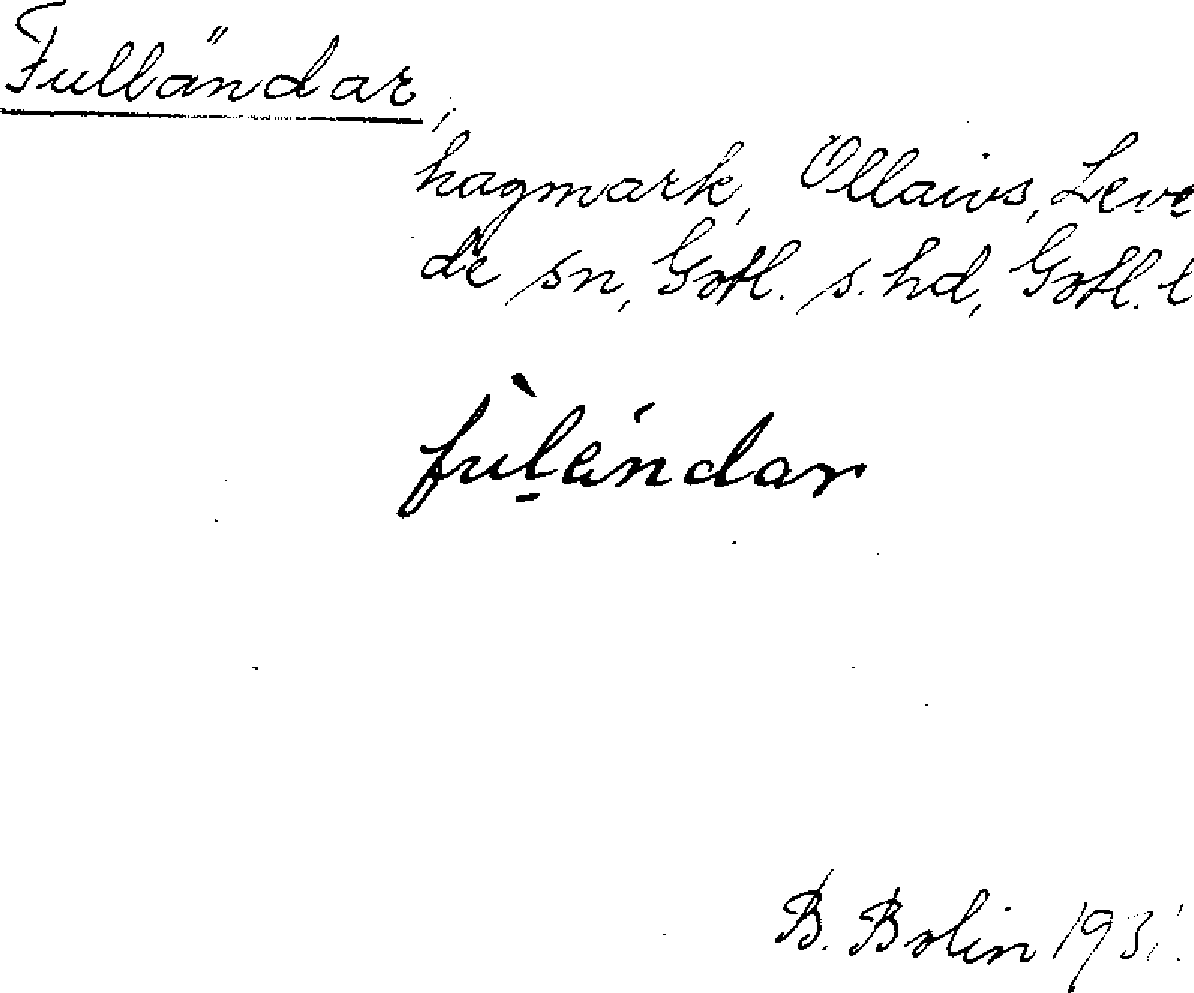 Fulländar,
hagmark, Ollaivs, Leve
de sn, Gotl. s. hd, Gotl. l
fulendar
B. Bolin 1931.